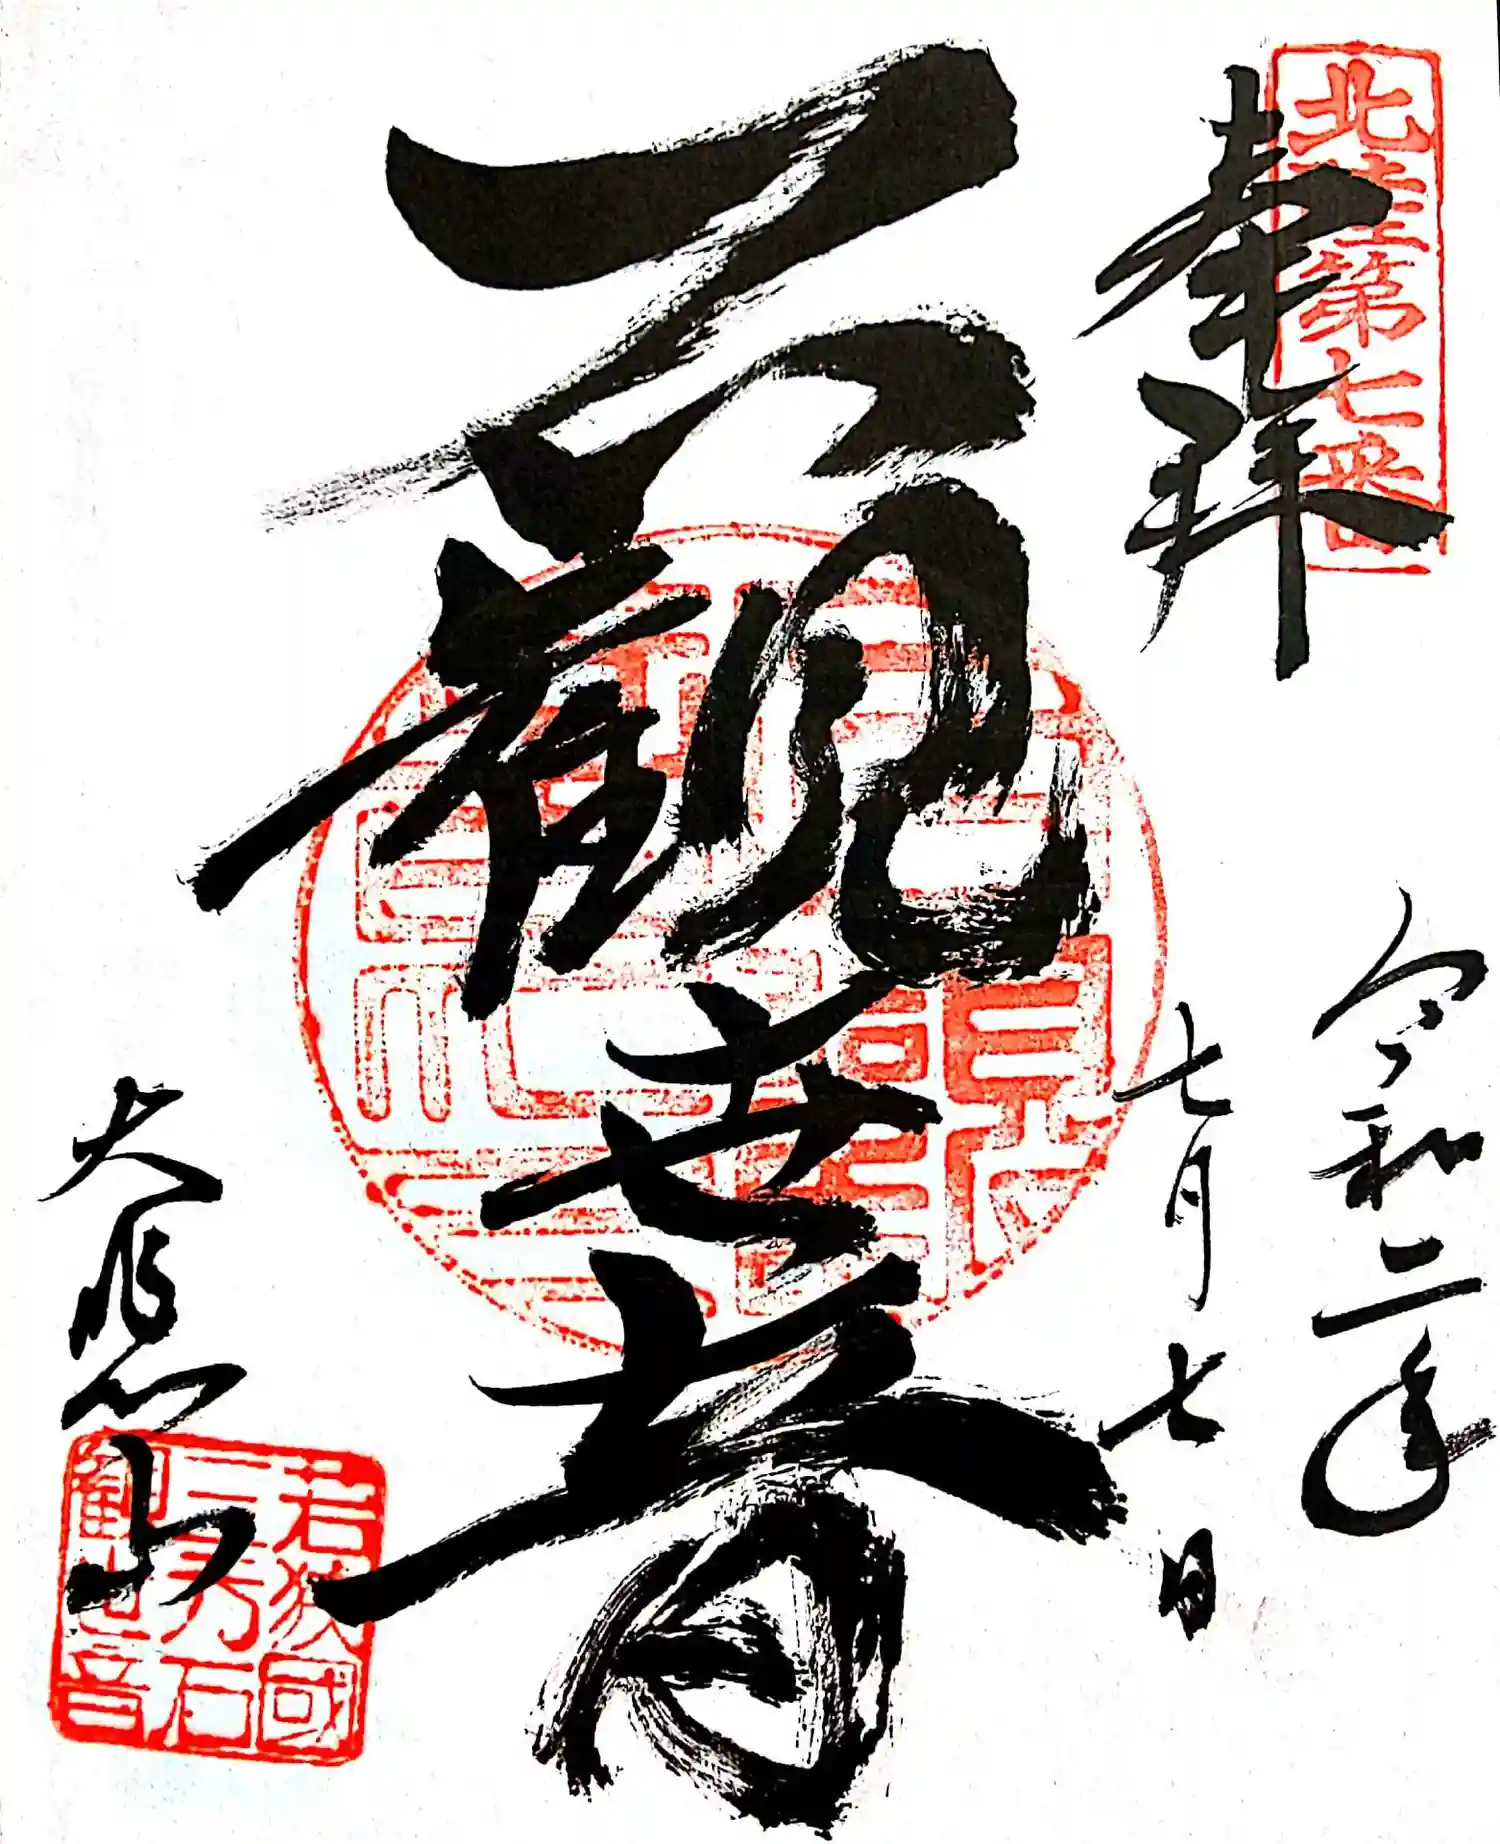 北陸第七番
奉拝
令和二年
七月七日
石観世音
大悲山
若狭國
三方石
観世音